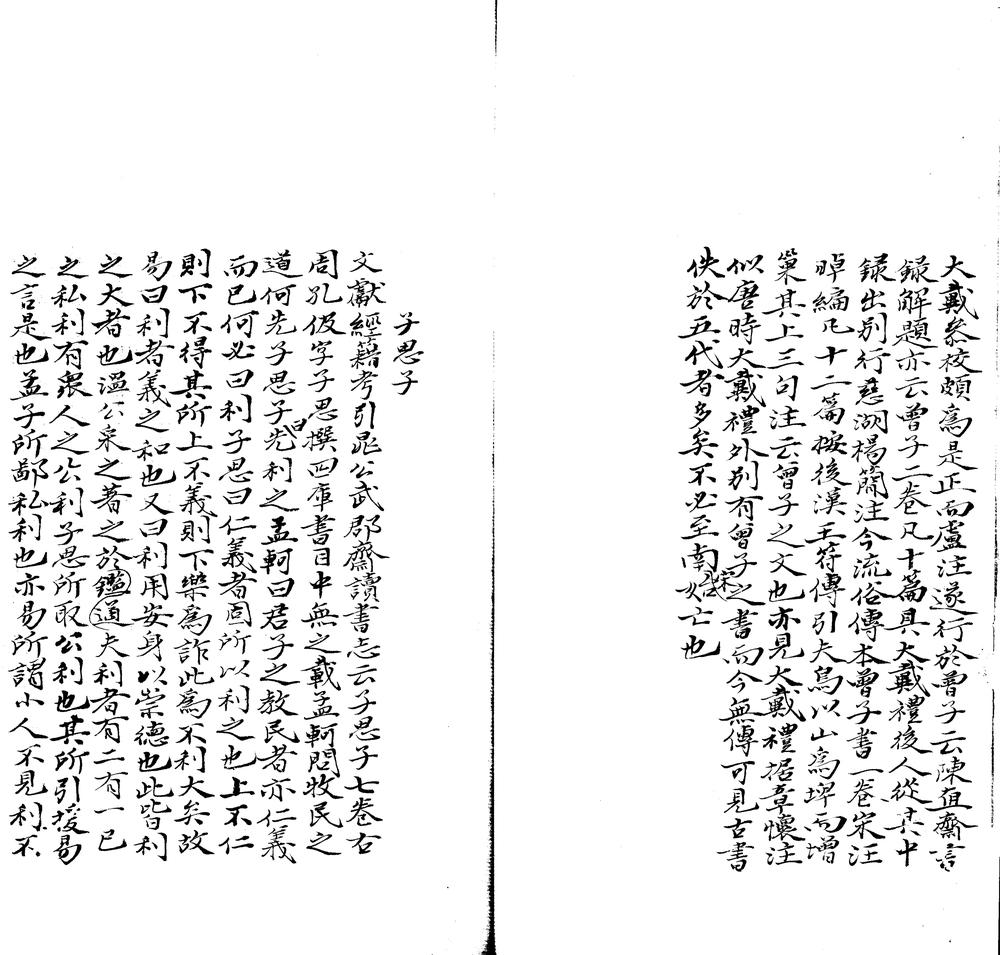 大戴叅校頗爲是正而盧注遂行於曾子云陳直齋書
録解題亦云曾子二卷凡十篇具大戴禮後人從其中
録出别行慈湖楊簡注今流俗傳本曾子書一卷宋汪
晫編凡十二篇桉後漢王符傳引夫鳥以山爲埤而增
巢其上三句注云曾子之文也亦見大戴禮据章懷注
似唐時大戴禮外别有曾子之書而今無傳可見古書
佚於五代者多矣不必至南宋始亡也
子思子
文獻經籍考引晁公武郡齋讀書志云子思子七卷右
周孔伋字子思撰四庫書目中無之載孟軻問牧民之
道何先子思子曰先利之孟軻曰君子之教民者亦仁義
而已何必曰利子思曰仁義者固所以利之也上不仁
則下不得其所上不義則下樂爲詐此爲不利大矣故
易曰利者義之和也又曰利用安身以崇德也此皆利
之大者也溫公采之著之於鑑通夫利者有二有一已
之私利有衆人之公利子思所取公利也其所引援易
之言是也孟子所鄙私利也亦易所謂小人不見利不